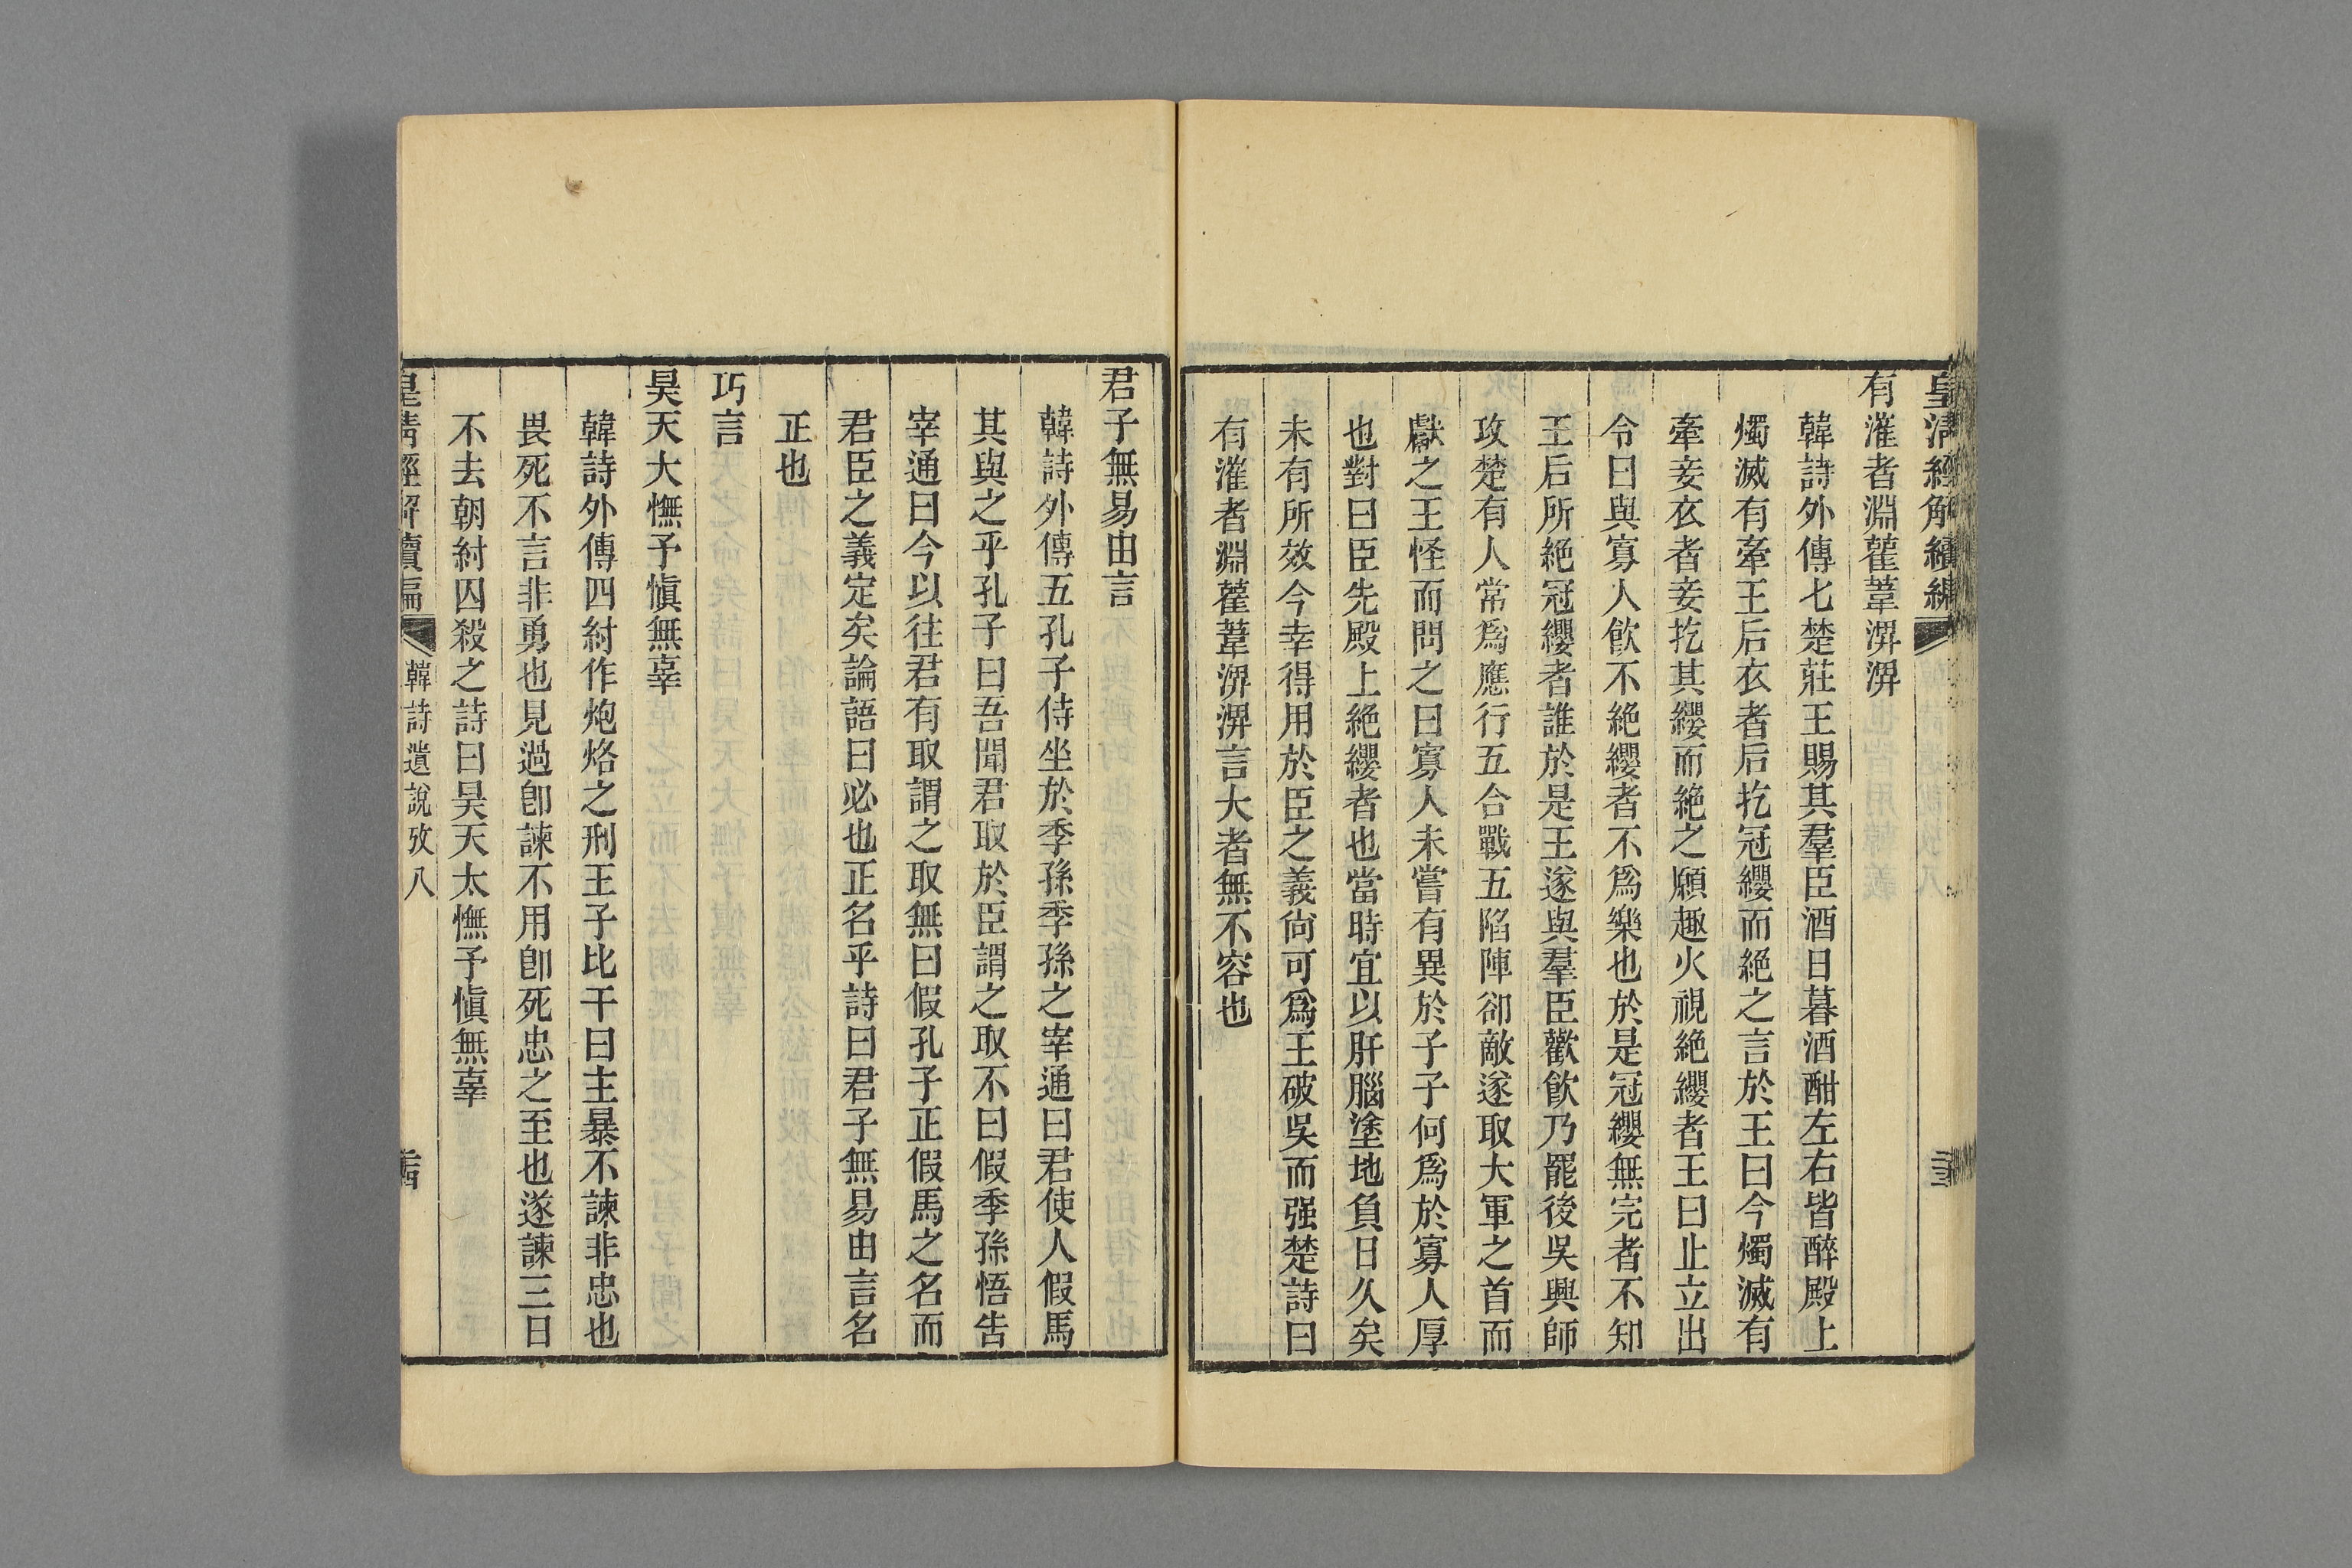 皇淸經解續編
有漼者淵雚葦淠淠
韓詩外傳七楚莊王賜其羣臣酒日暮酒酣左右皆醉殿上
燭滅有牽王后衣者后扢冠纓而絶之言於王曰今燭滅有
牽妾衣者妾扢其纓而絶之願趣火視絶纓者王曰止立出
令曰與寡人飮不絶纓者不爲樂也於是冠纓無完者不知
王后所絶冠纓者誰於是王遂與羣臣歡飮乃罷後吳興師
攻楚有人常爲應行五合戰五陷陣卻敵遂取大軍之首而
獻之王怪而問之曰寡人未嘗有異於子子何爲於寡人厚
也對曰臣先殿上絶纓者也當時宜以肝腦塗地負日久矣
未有所效今幸得用於臣之義尙可爲王破吳而强楚詩曰
有漼者淵雚葦淠淠言大者無不容也
君子無易由言
韓詩外傳五孔子侍坐於季孫季孫之宰通曰君使人假馬
其與之乎孔子曰吾聞君取於臣謂之取不曰假季孫悟告
宰通曰今以往君有取謂之取無曰假孔子正假馬之名而
君臣之義定矣論語曰必也正名乎詩曰君子無易由言名
正也
巧言
昊天大憮予愼無辜
韓詩外傳四紂作炮烙之刑王子比干曰主暴不諫非忠也
畏死不言非勇也見過卽諫不用卽死忠之至也遂諫三日
不去朝紂囚殺之詩曰昊天太憮予愼無辜
皇淸經解續編 韓詩遺說攷八